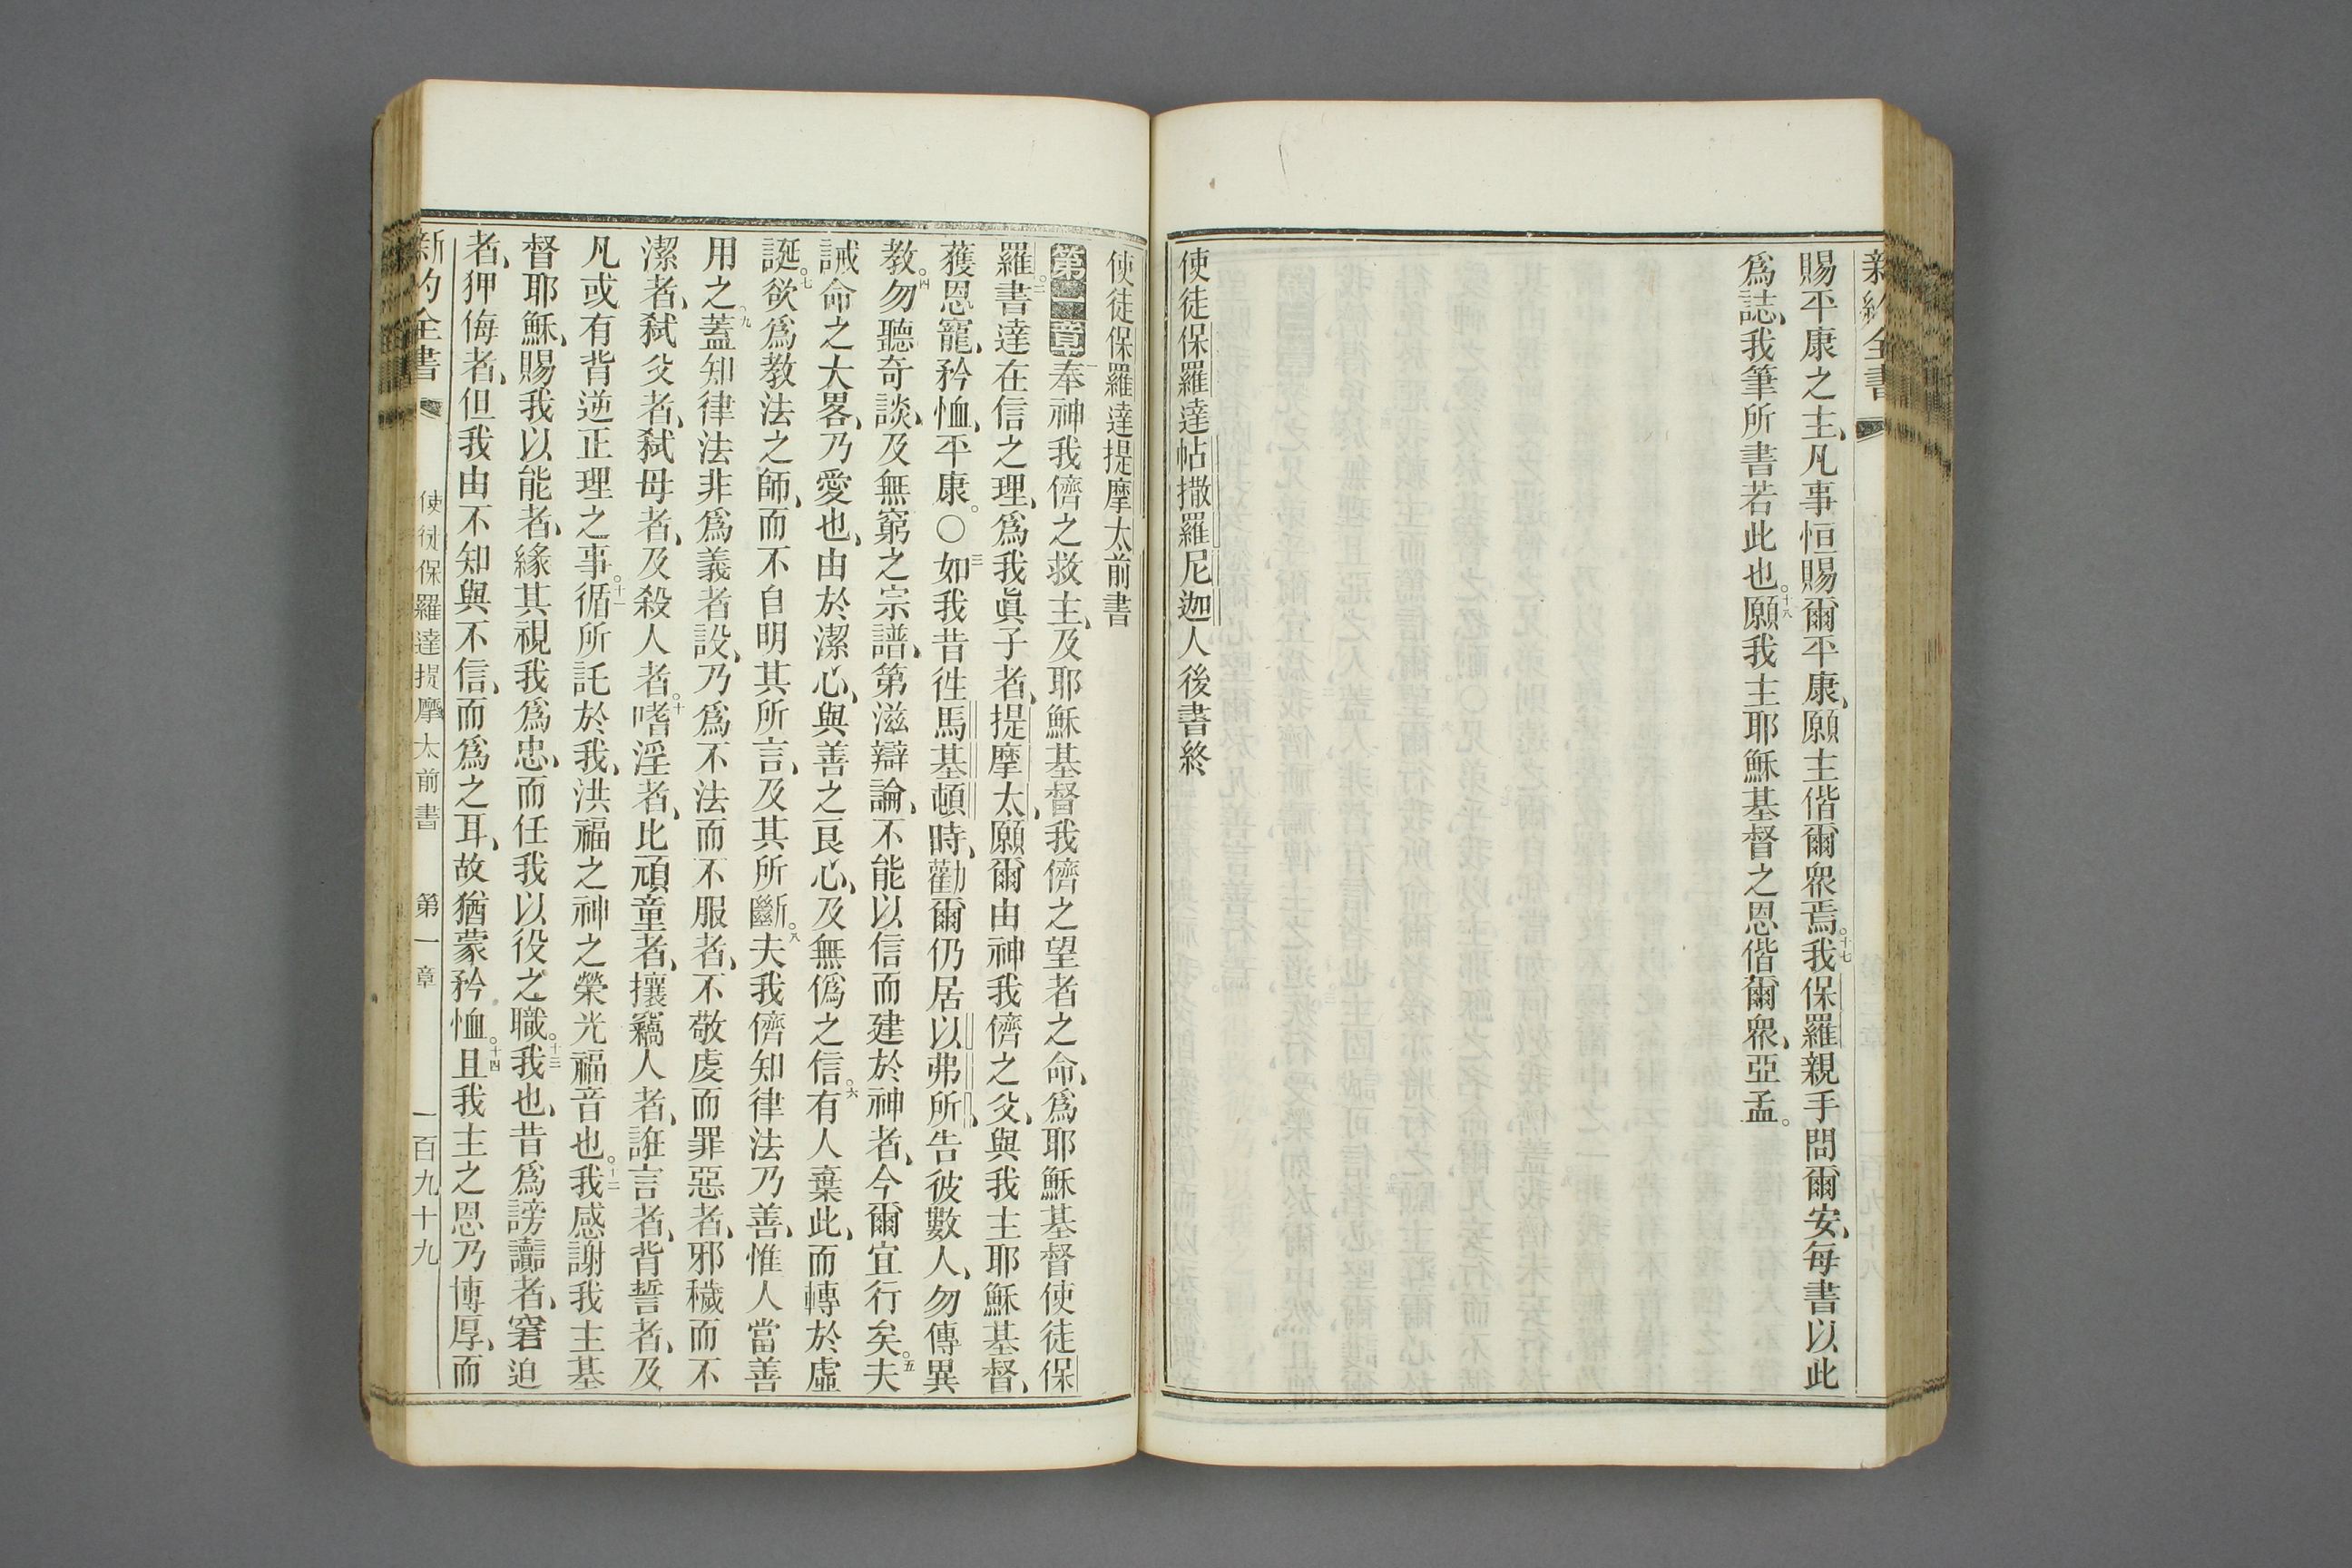 新約全書
賜平康之主、凡事恒賜爾平康、願主偕爾衆焉。十七我保羅親手問爾安、每書以此
爲誌、我筆所書若此也。十八願我主耶穌基督之恩偕爾衆、亞孟。
使徒保羅達帖撒羅尼迦人後書終
使徒保羅達提摩太前書
第一章一奉神我儕之救主、及耶穌基督我儕之望者之命、爲耶穌基督使徒保
羅。二書達在信之理、爲我眞子者、提摩太、願爾由神我儕之父、與我主耶穌基督、
獲恩寵、矜恤、平康。〇三如我昔徃馬基頓時、勸爾仍居以弗所、告彼數人、勿傳異
教。四勿聽奇談、及無窮之宗譜、第滋辯論、不能以信而建於神者、今爾宜行矣。五夫
誡命之大畧、乃愛也、由於潔心、與善之良心、及無僞之信。六有人棄此、而轉於虛
誕。七欲爲教法之師、而不自明其所言、及其所斷。八夫我儕知律法乃善、惟人當善
用之、九蓋知律法非爲義者設、乃爲不法而不服者、不敬虔而罪惡者、邪穢而不
潔者、弑父者、弑母者、及殺人者。十嗜淫者、比頑童者、攘竊人者、誑言者、背誓者、及
凡或有背逆正理之事。十一循所託於我、洪福之神之榮光福音也。十二我感謝我主基
督耶穌、賜我以能者、緣其視我爲忠、而任我以役之職。十三我也、昔爲謗讟者、窘迫
者、狎侮者、但我由不知與不信、而爲之耳、故猶蒙矜恤。十四且我主之恩乃博厚、而
新約全書 使徒保羅達提摩太前書 第一章 一百九十九